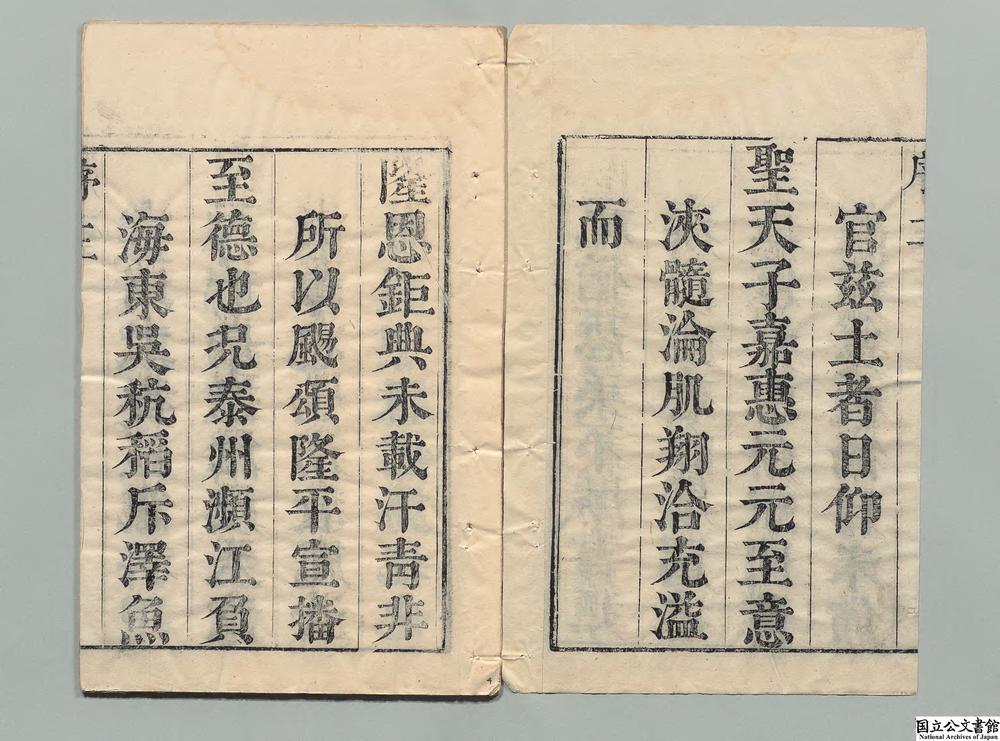 官兹土者日仰
聖天子嘉惠元元至意
浹髓淪肌翔洽充溢
而
隆恩鉅典未載汗青非
所以颺頌隆平宣播
至德也況泰州瀕江負
海東吳秔稻斥澤魚
国立公文書館
National Archives of Japan